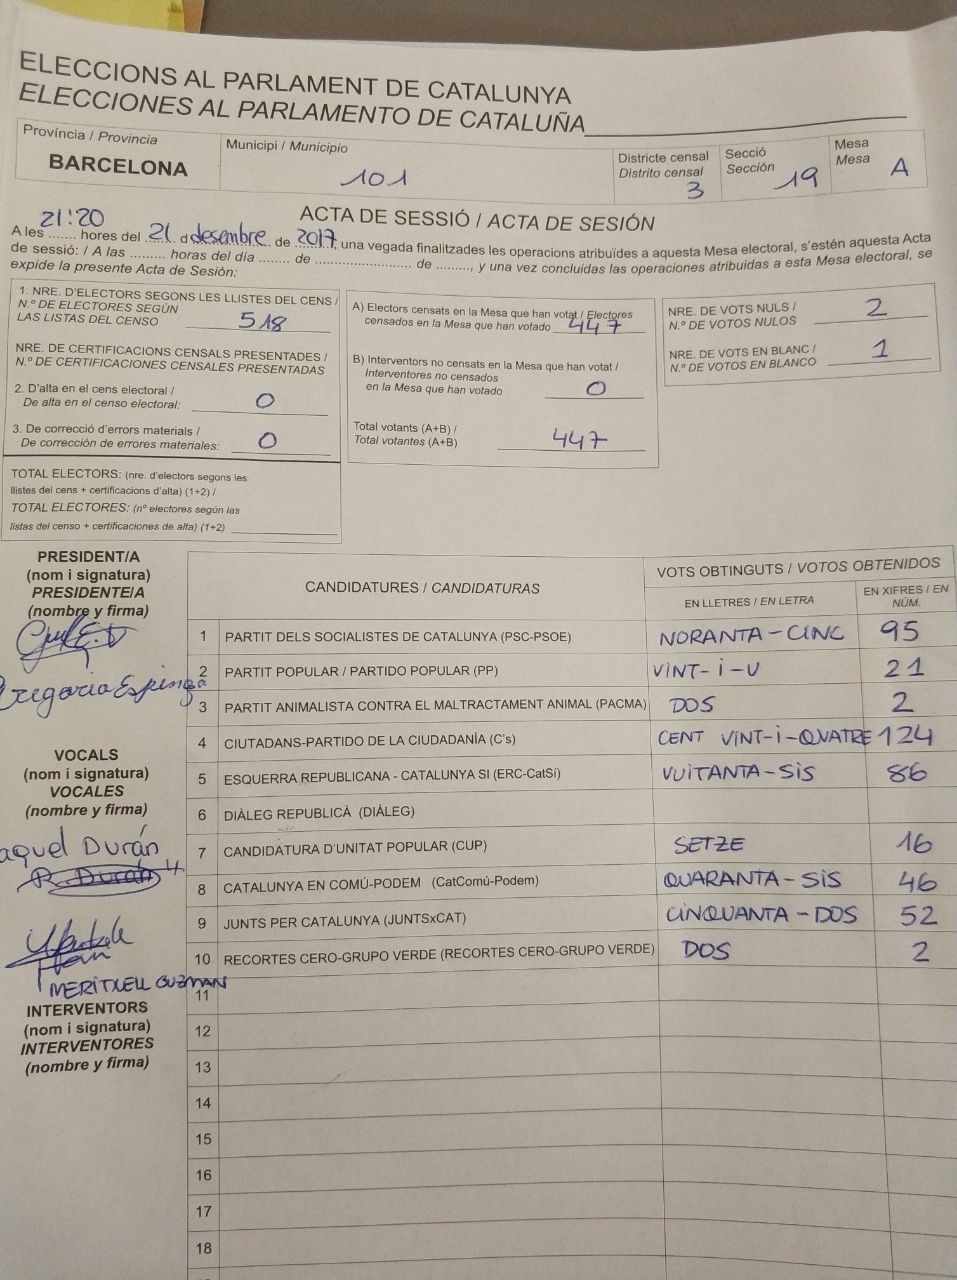 ELECCIONS AL PARLAMENT DE CATALUNYA
ELECCIONES AL PARLAMENTO DE CATALUÑA
Província / Provincia
BARCELONA
Municipi / Municipio
101
Districte censal
Distrito censal
3
Secció
Sección
19
Mesa
Mesa
A
ACTA DE SESSIÓ / ACTA DE SESIÓN
A les 21:20 hores del 21 d desembre de 2017, una vegada finalitzades les operacions atribuïdes a aquesta Mesa electoral, s'estén aquesta Acta
de sessió: / A las ......... horas del día ........ de ........................ de ........., y una vez concluidas las operaciones atribuidas a esta Mesa electoral, se
expide la presente Acta de Sesión:
1. NRE. D'ELECTORS SEGONS LES LLISTES DEL CENS /
N.º DE ELECTORES SEGÚN
LAS LISTAS DEL CENSO 518
NRE. DE CERTIFICACIONS CENSALS PRESENTADES /
N.º DE CERTIFICACIONES CENSALES PRESENTADAS
2. D'alta en el cens electoral /
De alta en el censo electoral: 0
3. De correcció d'errors materials /
De corrección de errores materiales: 0
TOTAL ELECTORS: (nre. d'electors segons les
llistes del cens + certificacions d'alta) (1+2) /
TOTAL ELECTORES: (nº electores según las
listas del censo + certificaciones de alta) (1+2)
A) Electors censats en la Mesa que han votat / Electores
censados en la Mesa que han votado 447
B) Interventors no censats en la Mesa que han votat /
Interventores no censados
en la Mesa que han votado 0
Total votants (A+B) /
Total votantes (A+B) 447
NRE. DE VOTS NULS /
N.º DE VOTOS NULOS 2
NRE. DE VOTS EN BLANC /
N.º DE VOTOS EN BLANCO 1
PRESIDENT/A
(nom i signatura)
PRESIDENTE/A
(nombre y firma)
Gregoria Espinoza
VOCALS
(nom i signatura)
VOCALES
(nombre y firma)
aquel Durán
R. Durán
MERITXELL GUZMAN
INTERVENTORS
(nom i signatura)
INTERVENTORES
(nombre y firma)
CANDIDATURES / CANDIDATURAS
VOTS OBTINGUTS / VOTOS OBTENIDOS
EN LLETRES / EN LETRA
EN XIFRES / EN
NÚM.
1 PARTIT DELS SOCIALISTES DE CATALUNYA (PSC-PSOE) NORANTA-CINC 95
2 PARTIT POPULAR / PARTIDO POPULAR (PP) VINT-i-U 21
3 PARTIT ANIMALISTA CONTRA EL MALTRACTAMENT ANIMAL (PACMA) DOS 2
4 CIUTADANS-PARTIDO DE LA CIUDADANÍA (C's) CENT VINT-i-QUATRE 124
5 ESQUERRA REPUBLICANA - CATALUNYA SI (ERC-CatSí) VUITANTA-SIS 86
6 DIÀLEG REPUBLICÀ (DIÀLEG)
7 CANDIDATURA D'UNITAT POPULAR (CUP) SETZE 16
8 CATALUNYA EN COMÚ-PODEM (CatComú-Podem) QUARANTA-SIS 46
9 JUNTS PER CATALUNYA (JUNTSxCAT) CINQUANTA-DOS 52
10 RECORTES CERO-GRUPO VERDE (RECORTES CERO-GRUPO VERDE) DOS 2
11
12
13
14
15
16
17
18